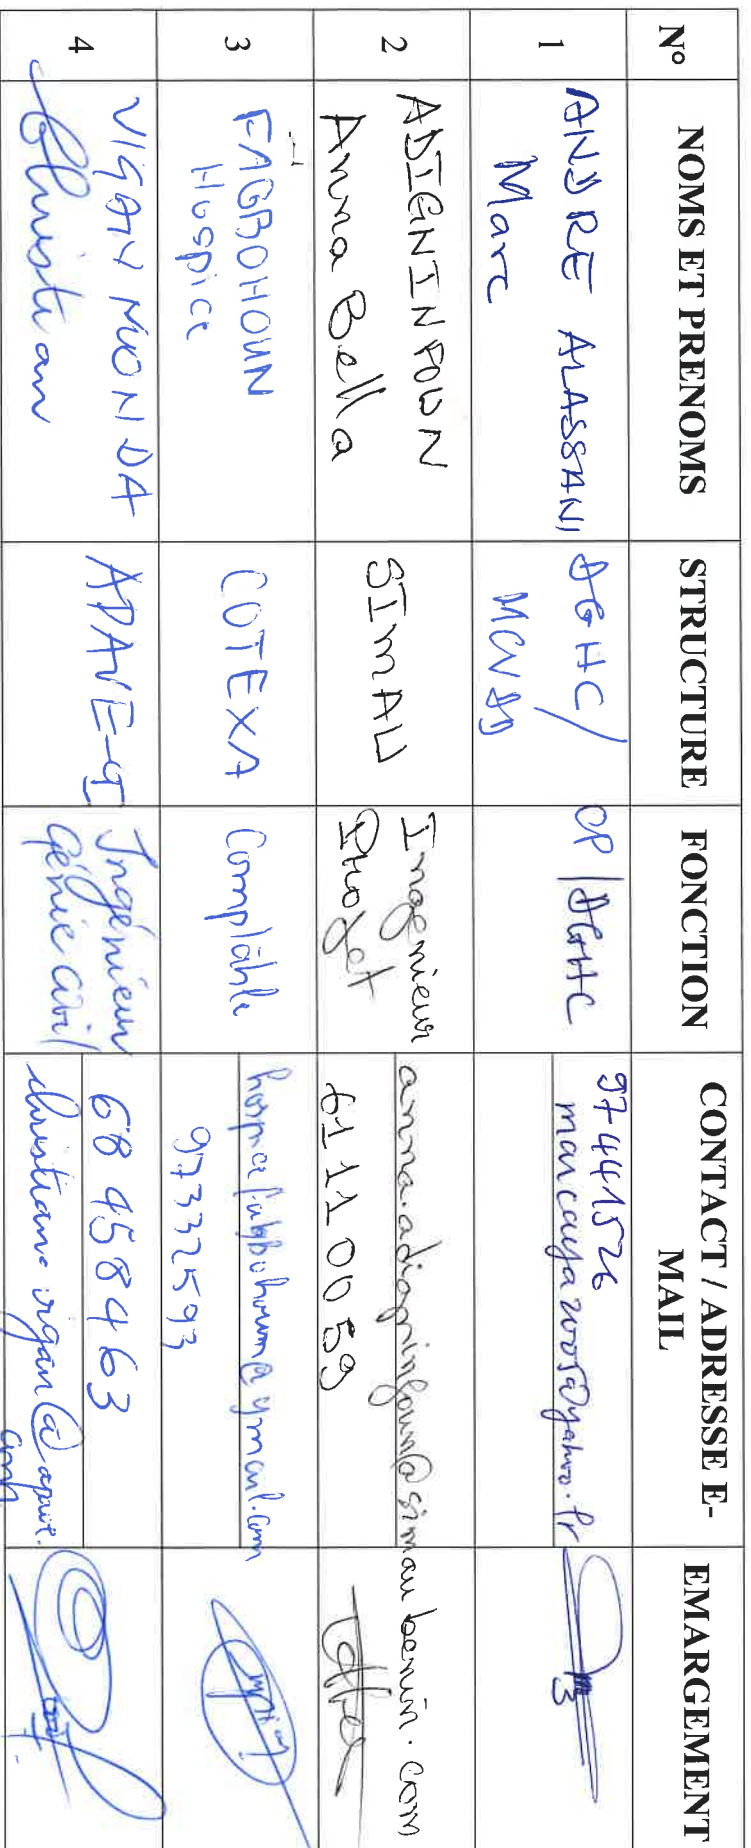 N° NOMS ET PRENOMS STRUCTURE FONCTION CONTACT / ADRESSE E-MAIL EMARGEMENT
1 ANDRE ALASSANI Marc DGHC / MCVDD CP/DGHC 97441526
marcaya2005@yahoo.fr
2 ADIGNINFOUN Anna Bella SImAU Ingenieur Projet anna.adigninfoun@simaubenin.com
61110059
3 FAGBOHOUN Hospice COTEXA Comptable hospicefagbohoun@ymail.com
97332593
4 VIGAN NUONDA Christian APAVE-I Ingénieur Génie Civil 68458463
christian.vigan@apave.com